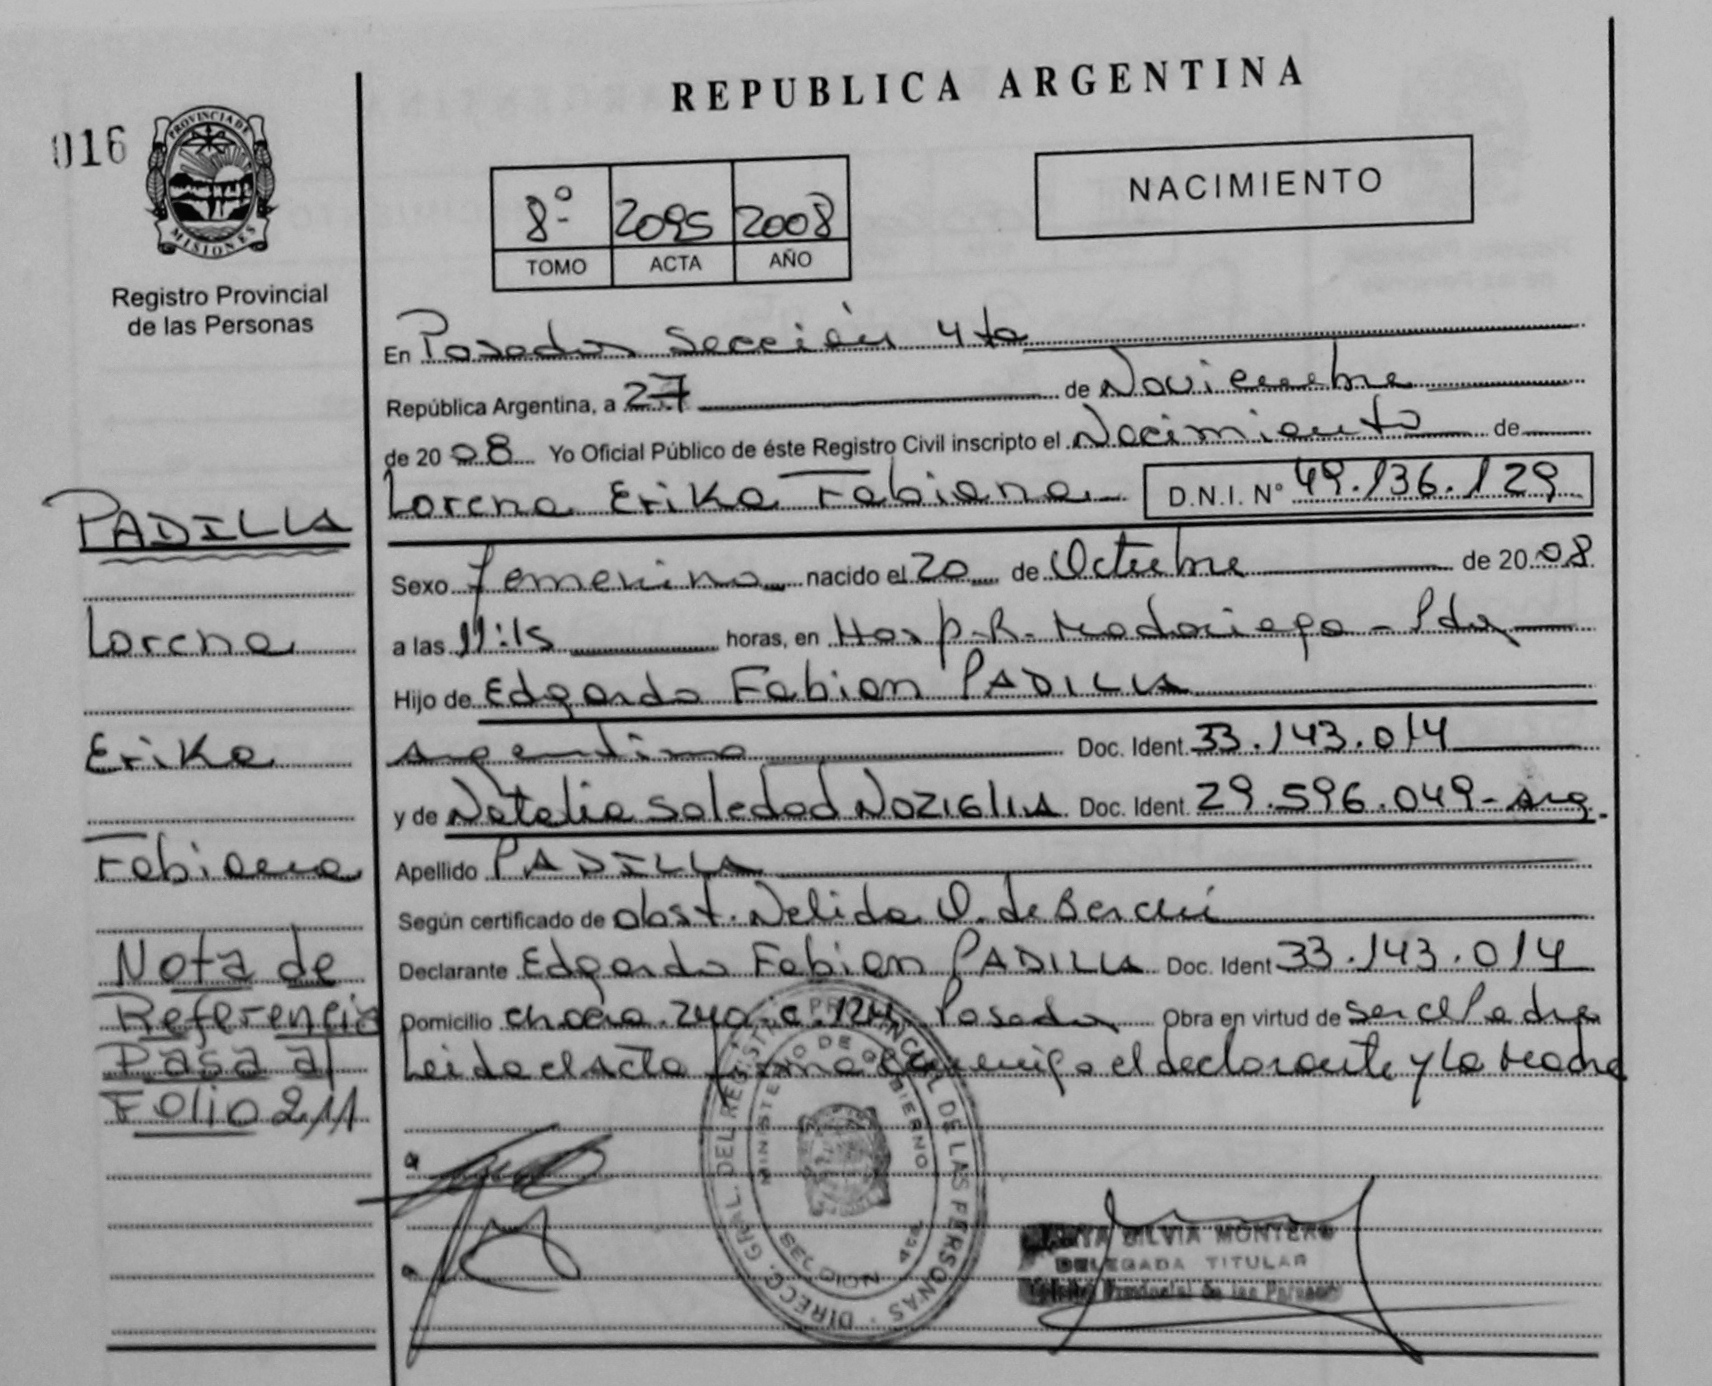 REPUBLICA ARGENTINA
016
PROVINCIA DE
MISIONES
Registro Provincial
de las Personas
NACIMIENTO
8º 2095 2008
TOMO ACTA AÑO
En Posadas Sección 4ta
República Argentina, a 27 de Noviembre
de 2008 Yo Oficial Público de éste Registro Civil inscripto el Nacimiento de
Lorena Erika Fabiana D.N.I. Nº 49.136.129
Sexo femenino nacido el 20 de Octubre de 2008
a las 11:15 horas, en Hosp. R. Madariaga - Pdas
Hijo de Edgardo Fabian PADILLA
Argentino Doc. Ident. 33.143.014
y de Natalia Soledad NOZIGLIA Doc. Ident. 29.596.049 - Arg.
Apellido PADILLA
Según certificado de obst. Nelida O. de
Declarante Edgardo Fabian PADILLA Doc. Ident 33.143.014
Domicilio 240 c. 124 Posadas Obra en virtud de ser el Padre
Leida el acta firma conmigo el declarante y la Madre
PADILLA
Lorena
Erika
Fabiana
Nota de
Referencia
Pasa al
Folio 211
DIRECC. GRAL. DEL REGISTRO PROVINCIAL DE LAS PERSONAS
MINISTERIO DE GOBIERNO
SILVIA MONTERO
DELEGADA TITULAR
Provincial de las Personas